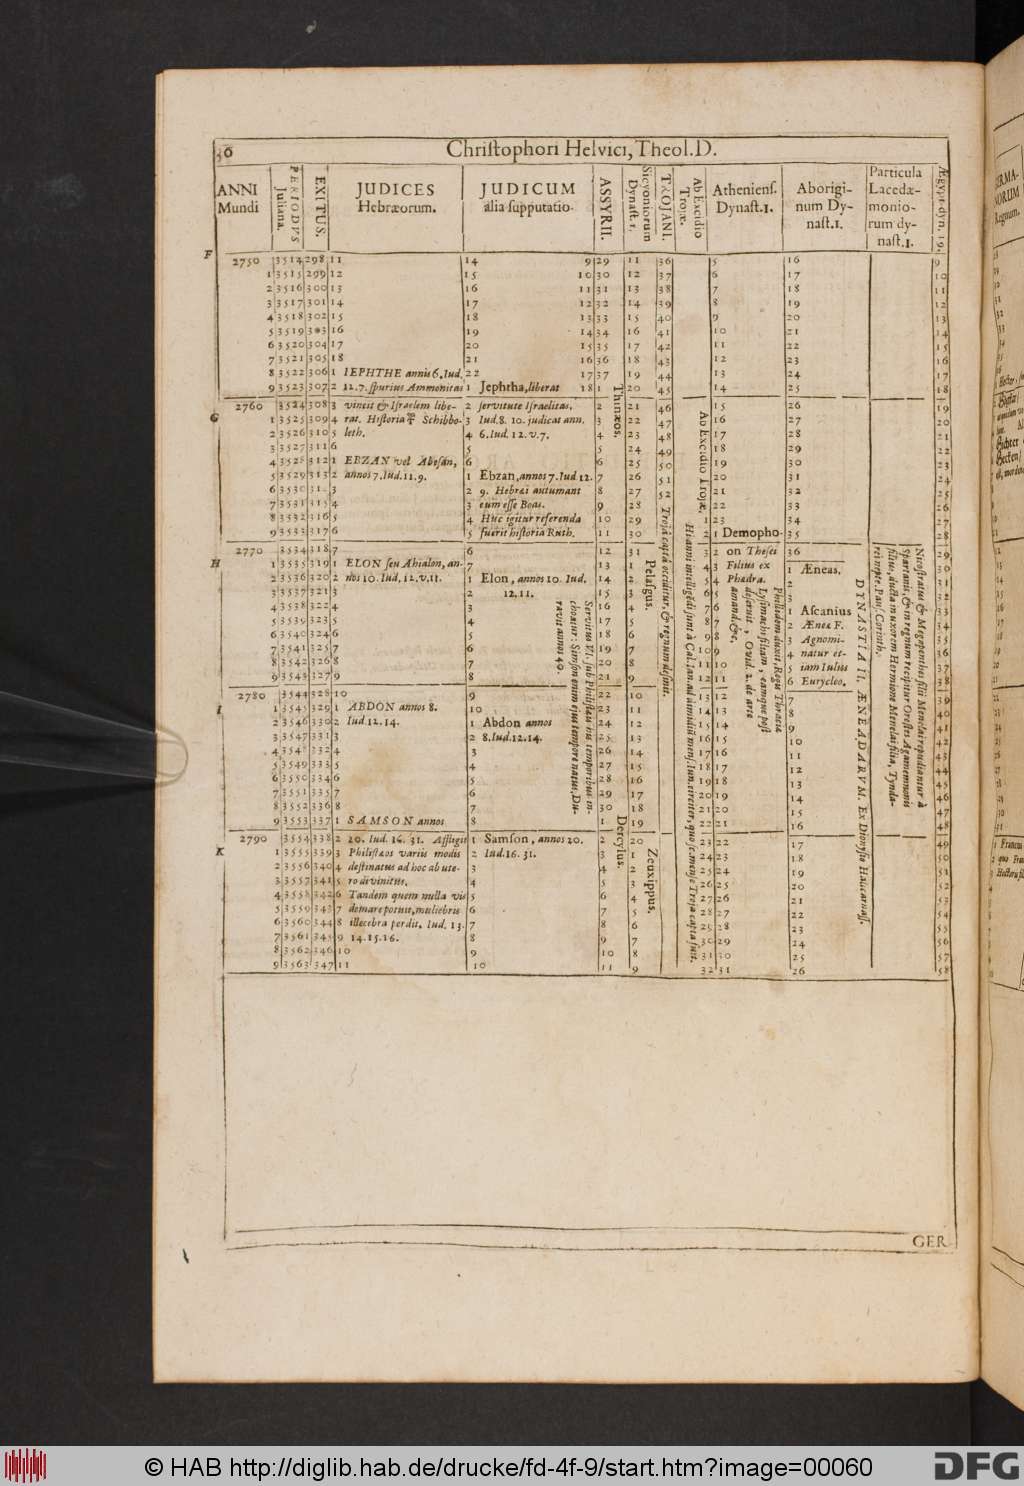 Christophori Helvici, Theol. D.
ANNI Mundi
PERIODUS Juliana.
EXITUS.
JUDICES Hebræorum.
JUDICUM alia supputatio.
ASSYRII.
Sicyoniorum Dynast. 1.
TROJANI.
Ab Excidio Trojæ.
Atheniens. Dynast. 1.
Aborigi-
num Dy-
nast. 1.
Particula
Lacedæ-
monio-
rum dy-
nast. 1.
Ægypt. dyn. 19.
F
2750 3514 298 11 14 9 29 11 36 5 16 9
1 3515 299 12 15 10 30 12 37 6 17 10
2 3516 300 13 16 11 31 13 38 7 18 11
3 3517 301 14 17 12 32 14 39 8 19 12
4 3518 302 15 18 13 33 15 40 9 20 13
5 3519 303 16 19 14 34 16 41 10 21 14
6 3520 304 17 20 15 35 17 42 11 22 15
7 3521 305 18 21 16 36 18 43 12 23 16
8 3522 306 1 IEPHTHE annis 6. Iud. 22 17 37 19 44 13 24 17
9 3523 307 2 12. 7. spurius Ammonitas 1 Jephtha, liberat 18 1 20 45 14 25 18
G
2760 3524 308 3 vincit & Israelem libe- 2 servitute Israelitas. 2 21 46 15 26 19
1 3525 309 4 rat. Historia Schibbo- 3 Iud. 8. 10. judicat ann. 3 22 47 16 27 20
2 3526 310 5 leth. 4 6. Iud. 12. v. 7. 4 23 48 17 28 21
3 3527 311 6 5 5 24 49 18 29 22
4 3528 312 1 EBZAN vel Abesan, 6 6 25 50 19 30 23
5 3529 313 2 annos 7. Iud. 11. 9. 1 Ebzan, annos 7. Iud 12. 7 26 51 20 31 24
6 3530 314 3 2 9. Hebræi autumant 8 27 52 21 32 25
7 3531 315 4 3 eum esse Boas. 9 28 22 33 26
8 3532 316 5 4 Huc igitur referenda 10 29 1 23 34 27
9 3533 317 6 5 fuerit historia Ruth. 11 30 2 1 Demopho- 35 28
Thinæos.
H
2770 3534 318 7 6 12 31 3 2 on Thesei 36 29
1 3535 319 1 ELON seu Ahialon, an- 7 13 1 4 3 Filius ex 1 Æneas. 30
2 3536 320 2 nos 10. Iud. 12. v. 11. 1 Elon, annos 10. Iud. 14 2 5 4 Phædra. 2 31
3 3537 321 3 2 12. 11. 15 3 6 5 3 32
4 3538 322 4 3 16 4 7 6 1 Ascanius 33
5 3539 323 5 4 17 5 8 7 2 Æneæ F. 34
6 3540 324 6 5 18 6 9 8 3 Agnomi- 35
7 3541 325 7 6 19 7 10 9 4 natur et- 36
8 3542 326 8 7 20 8 11 10 5 iam Iulius 37
9 3543 327 9 8 21 9 12 11 6 Eurycleo. 38
Pelasgus.
I
2780 3544 328 10 9 22 10 13 12 7 39
1 3545 329 1 ABDON annos 8. 10 23 11 14 13 8 40
2 3546 330 2 Iud. 12. 14. 1 Abdon annos 24 12 15 14 9 41
3 3547 331 3 2 8. Iud. 12. 14. 25 13 16 15 10 42
4 3548 332 4 3 26 14 17 16 11 43
5 3549 333 5 4 27 15 18 17 12 44
6 3550 334 6 5 28 16 19 18 13 45
7 3551 335 7 6 29 17 20 19 14 46
8 3552 336 8 7 30 18 21 20 15 47
9 3553 337 1 SAMSON annos 8 1 19 22 21 16 48
Dercylus.
K
2790 3554 338 2 20. Iud. 16. 31. Affligit 1 Samson, annos 20. 2 20 23 22 17 49
1 3555 339 3 Philistæos variis modis 2 Iud. 16. 31. 3 1 24 23 18 50
2 3556 340 4 destinatus ad hoc ab ute- 3 4 2 25 24 19 51
3 3557 341 5 ro divinitus. 4 5 3 26 25 20 52
4 3558 342 6 Tandem quem nulla vis 5 6 4 27 26 21 53
5 3559 343 7 domare potuit, muliebris 6 7 5 28 27 22 54
6 3560 344 8 illecebra perdit. Iud. 13. 7 8 6 29 28 23 55
7 3561 345 9 14. 15. 16. 8 9 7 30 29 24 56
8 3562 346 10 9 10 8 31 30 25 57
9 3563 347 11 10 11 9 32 31 26 58
Zeuxippus.
Servitus VI. sub Philistæis his temporibus in-
choatur: Simson enim ejus tempore natus, Du-
ravit annos 40.
Troja capta occiditur, & regnum desinit.
Ab Excidio Trojæ,
Hi anni intelligẽdi sunt à Cal. Ian. ad dimidiũ mens. Iun. circiter, quo sc. mense Troja capta fuit.
Phyllidem duxit, Regis Thraciæ
Lysimachi filiam, eamque post
deseruit, Ovid. 2. de arte
amand. &c.
DYNASTIA II. ÆNEADARUM. Ex Dionysio Halicarnass.
Nicostratus & Megapenthes filii Menelai repudiantur à
Spartanis, & in regnum recipitur Orestes Agamemnonis
filius, ducta in uxorem Hermione Menelai filia, Tynda-
rei nepte. Paus. Corinth.
GER
© HAB http://diglib.hab.de/drucke/fd-4f-9/start.htm?image=00060
DFG